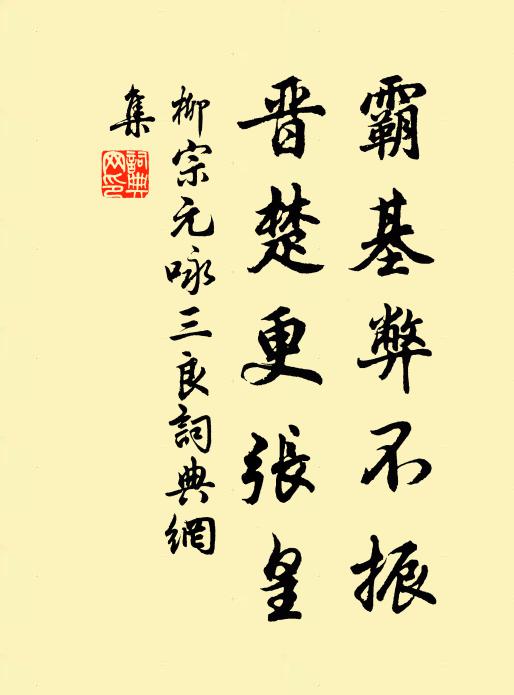 霸基弊不振
晋楚更张皇
柳宗元咏三良詞典網
集
詞典网印